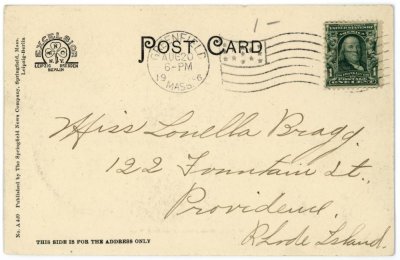 1-
POST CARD
EXCELSIOR
N. Y.
LEIPZIG DRESDEN
BERLIN
AUG 20
6-PM
1906
MASS.
1
No. A 449 Published by The Springfield News Company, Springfield, Mass.
Leipzig-Berlin
Miss Louella Bragg.
122 Fountain St.,
Providence,
Rhode Island.
THIS SIDE IS FOR THE ADDRESS ONLY